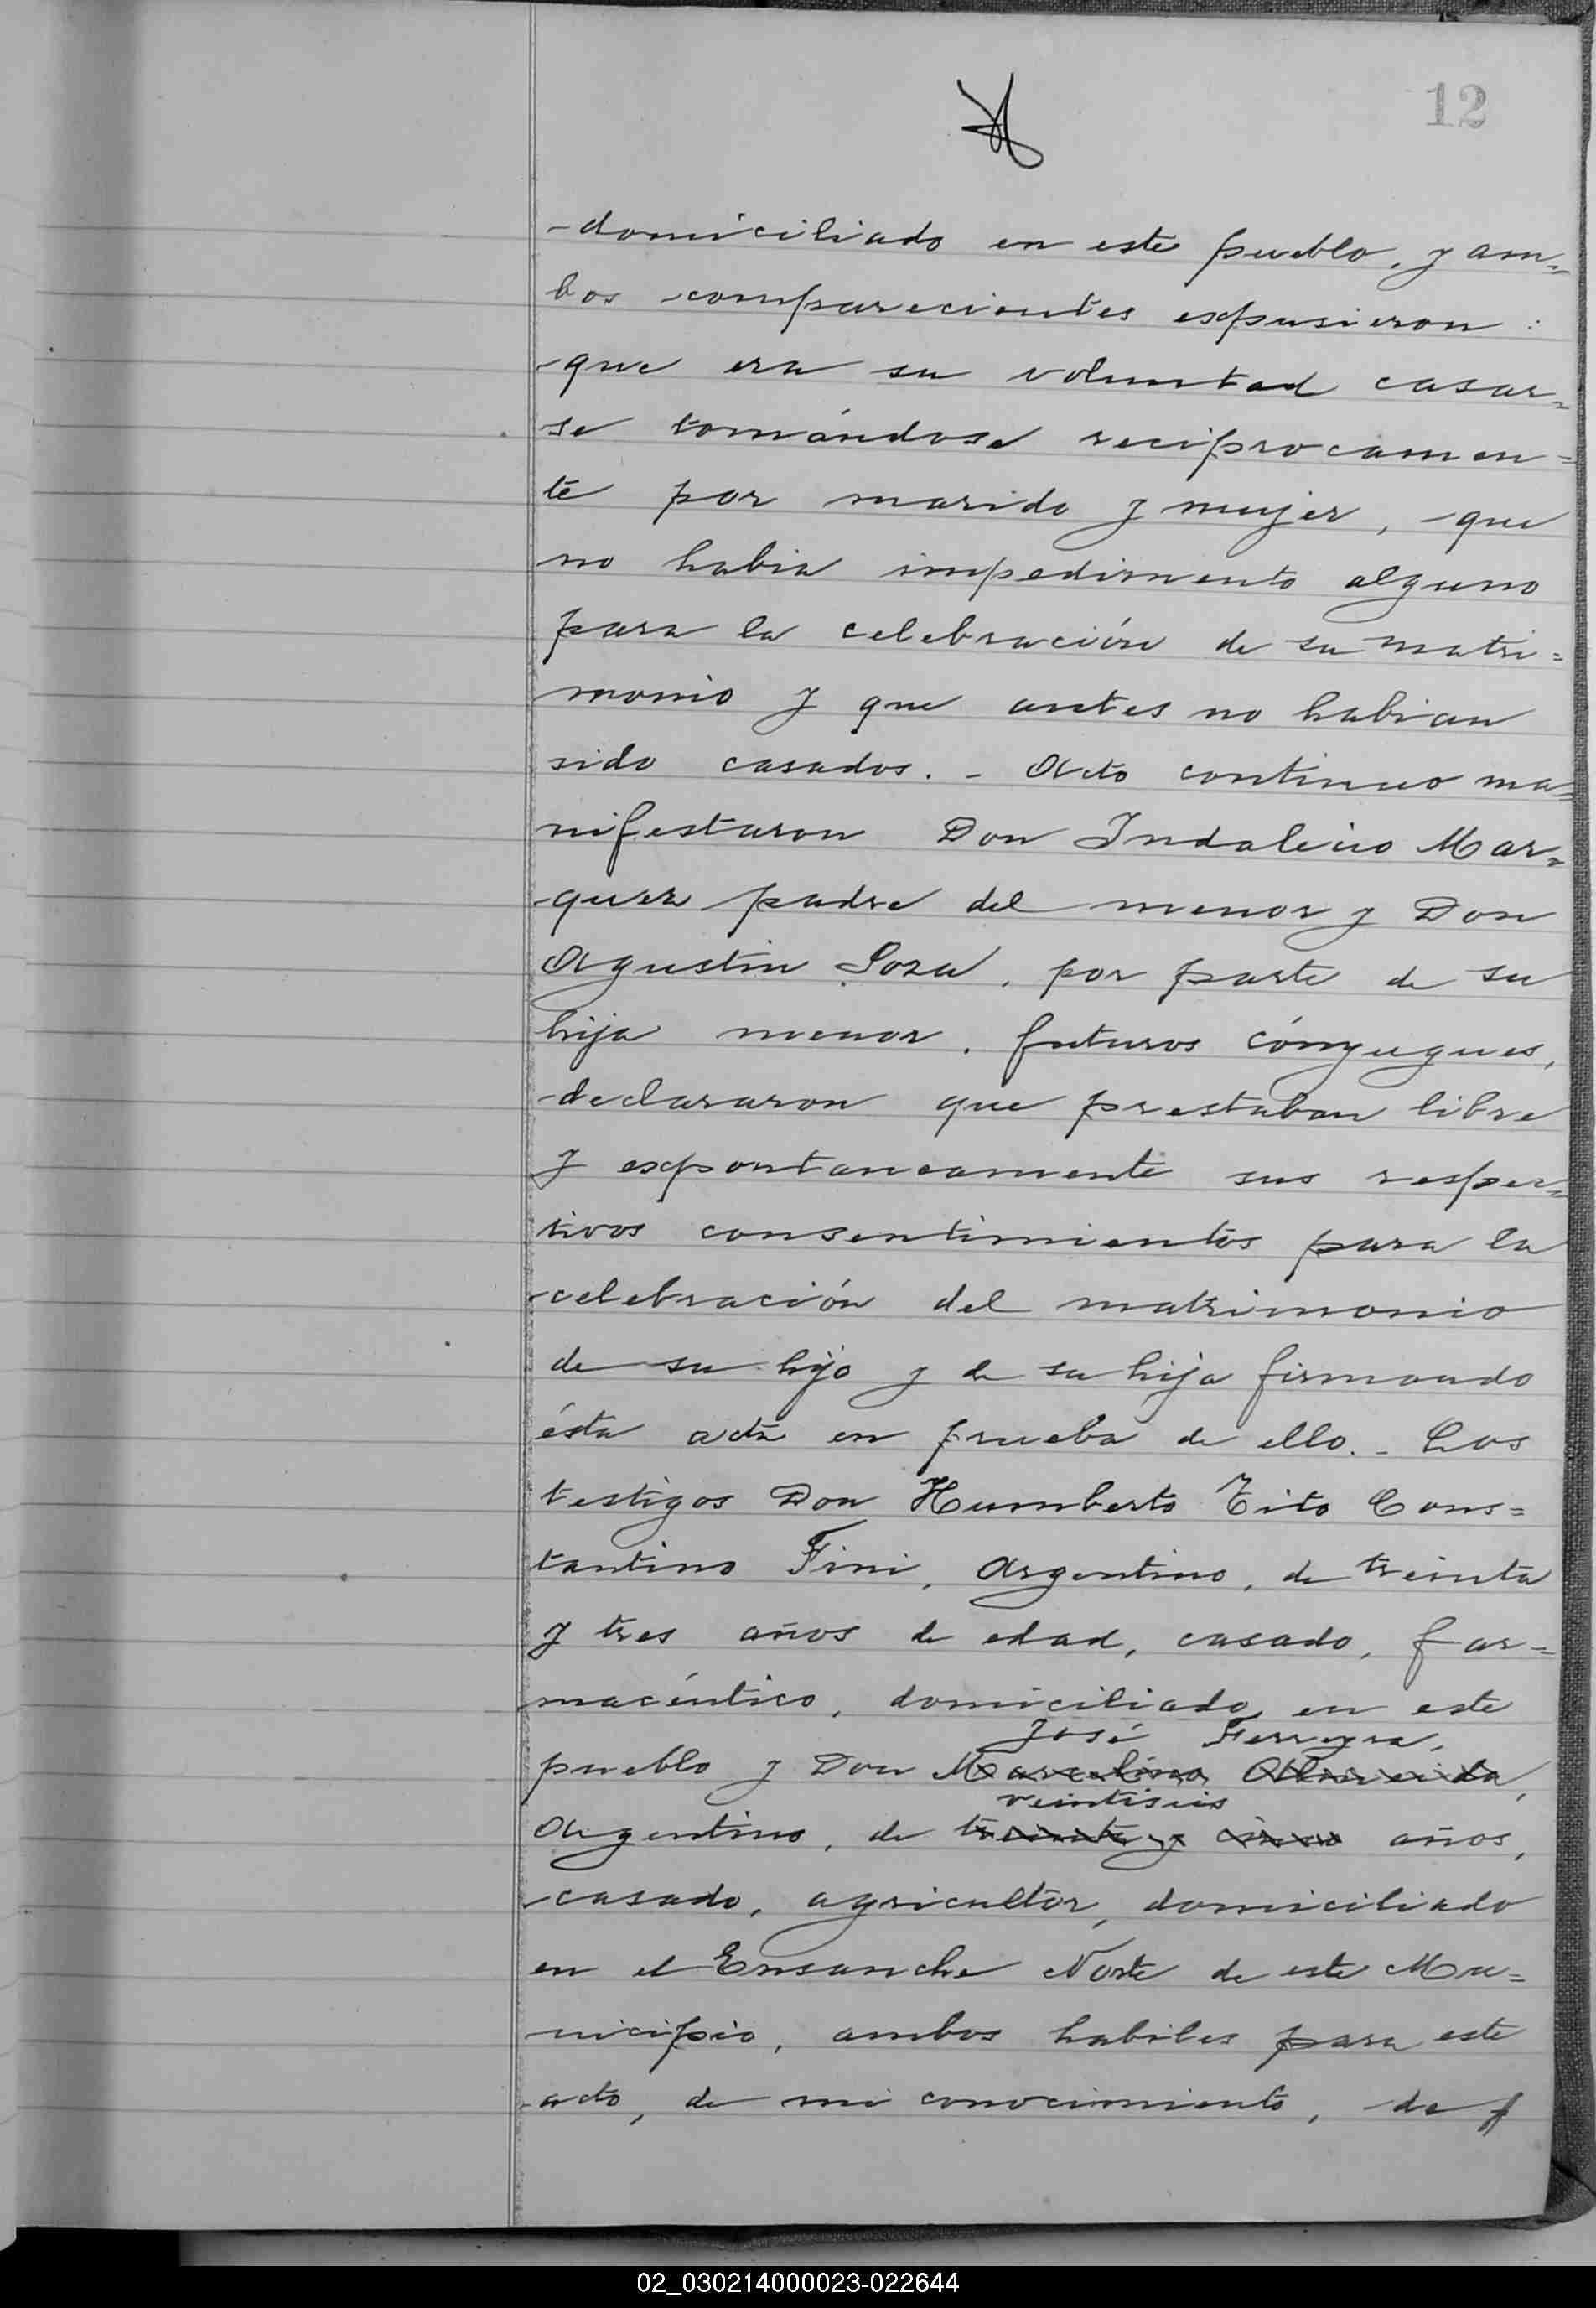 12
domiciliado en este pueblo, y am=
bos comparecientes expusieron:
que era su voluntad casar=
se tomándose reciprocamen=
te por marido y mujer, que
no habia impedimento alguno
para la celebración de su matri=
monio y que antes no habian
sido casados. - Acto continuo ma=
nifestaron Don Indalecio Mar=
quez padre del menor y Don
Agustin Soza, por parte de su
hija menor, futuros cónyugues,
declararon que prestaban libre
y espontaneamente sus respec=
tivos consentimientos para la
celebración del matrimonio
de su hijo y de su hija firmando
ésta acta en prueba de ello. - Los
testigos Don Humberto Tito Cons=
tantino Fini, Argentino, de treinta
y tres años de edad, casado, far=
macéutico, domiciliado en este
José Ferreyra,
pueblo y Don Marcelino Almeida,
veintiseis
Argentino, de treinta y cinco años,
casado, agricultor, domiciliado
en el Ensanche Norte de este Mu=
nicipio, ambos habiles para este
acto, de mi conocimiento, de
02_030214000023-022644